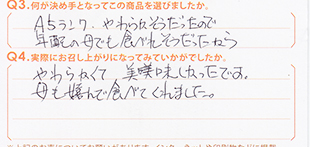 Q3.何が決め手となってこの商品を選びましたか。
A5ランク.やわらかそうだったので
年配の母でも食べれそうだったから
Q4.実際にお召し上がりになってみていかがでしたか。
やわらかくて、美味しかったです。
母も喜んで食べてくれました。